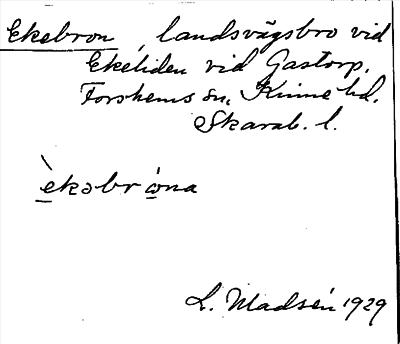 Ekebron, landsvägsbro vid
Ekeliden vid Gastorp,
Forshems sn, Kinne hd.
Skarab. l.
èkəbróna
L. Madsén 1929